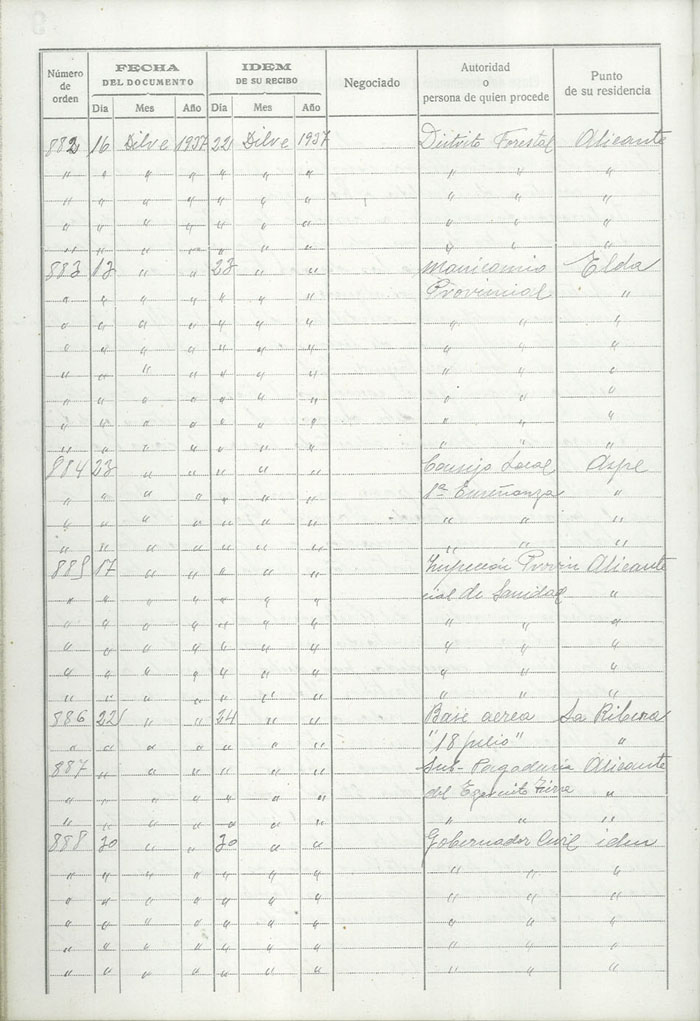 Número de orden | FECHA DEL DOCUMENTO | IDEM DE SU RECIBO | Negociado | Autoridad o persona de quien procede | Punto de su residencia
Dia Mes Año Dia Mes Año
882 16 Dibre 1937 22 Dibre 1937 Distrito Forestal Alicante
" " " " " " " " " "
" " " " " " " " " "
" " " " " " " " " "
" " " " " " " " " "
883 13 " " 23 " " Manicomio Elda
" " " " " " " Provincial "
" " " " " " " " " "
" " " " " " " " " "
" " " " " " " " " "
" " " " " " " " " "
" " " " " " " " " "
" " " " " " " " " "
884 23 " " " " " Consejo Local Aspe
" " " " " " " 1ª Enseñanza "
" " " " " " " " " "
" " " " " " " " " "
885 17 " " " " " Inspección Provin Alicante
" " " " " " " cial de Sanidad "
" " " " " " " " " "
" " " " " " " " " "
" " " " " " " " " "
" " " " " " " " " "
886 22 " " 24 " " Base aerea La Ribera
" " " " " " " "18 julio" "
887 " " " " " " Sub-Pagaduria Alicante
" " " " " " " del Ejercito Tierra "
" " " " " " " " " "
888 30 " " 30 " " Gobernador Civil idem
" " " " " " " " " "
" " " " " " " " " "
" " " " " " " " " "
" " " " " " " " " "
" " " " " " " " " "